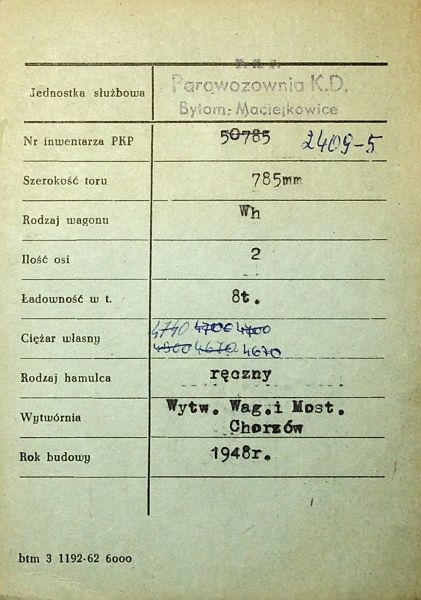 P.K.P.
Parowozownia K.D.
Jednostka służbowa
Bytom-Maciejkowice
Nr inwentarza PKP 50785 2409-5
Szerokość toru 785mm
Rodzaj wagonu Wh
Ilość osi 2
Ładowność w t. 8t.
4740 4700 4700
Ciężar własny
4800 4670 4670
Rodzaj hamulca ręczny
Wytw. Wag. i Most.
Wytwórnia
Chorzów
Rok budowy 1948r.
btm 3 1192-62 6000